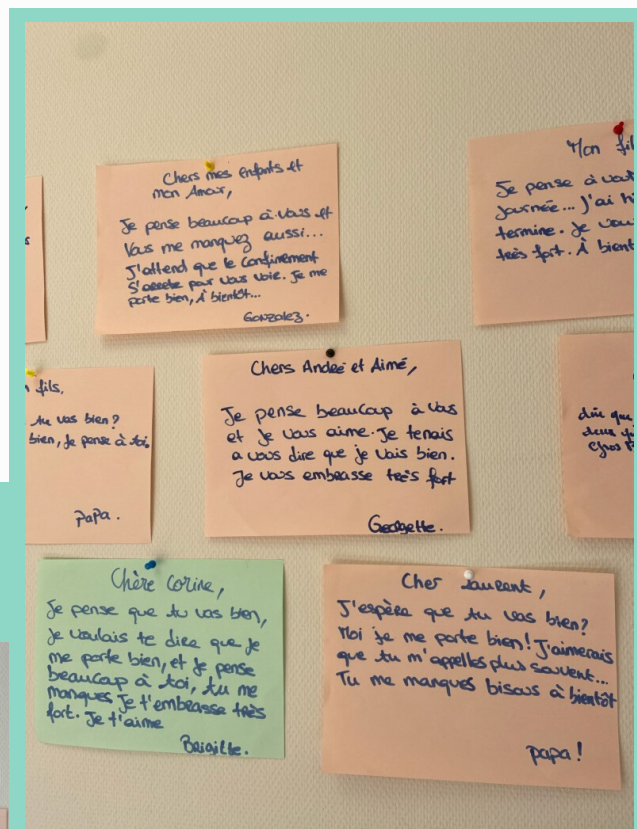 Chers mes enfants et
mon Amour,
Je pense beaucoup à vous et
Vous me manquez aussi...
J'attend que le confinement
s'arrete pour vous voir. Je me
porte bien, à bientôt...
Gonzalez.
Mon fil
Je pense à vous
journée... J'ai h
termine. Je vou
très fort. À bient
s
fils,
tu vas bien?
bien, je pense à toi,
Papa.
Chers André et Aimé,
Je pense beaucoup à vous
et je vous aime. Je tenais
a vous dire que je vais bien.
Je vous embrasse très fort
Georgette.
dire que
deux
Gros
Chère Corine,
Je pense que tu vas bien,
Je voulais te dire que je
me porte bien, et je pense
beaucoup à toi, tu me
manques Je t'embrasse très
fort. Je t'aime
Brigitte.
Cher Laurent,
J'espère que tu vas bien?
Moi je me porte bien! J'aimerais
que tu m'appelles plus souvent...
Tu me manques bisous à bientôt
papa!